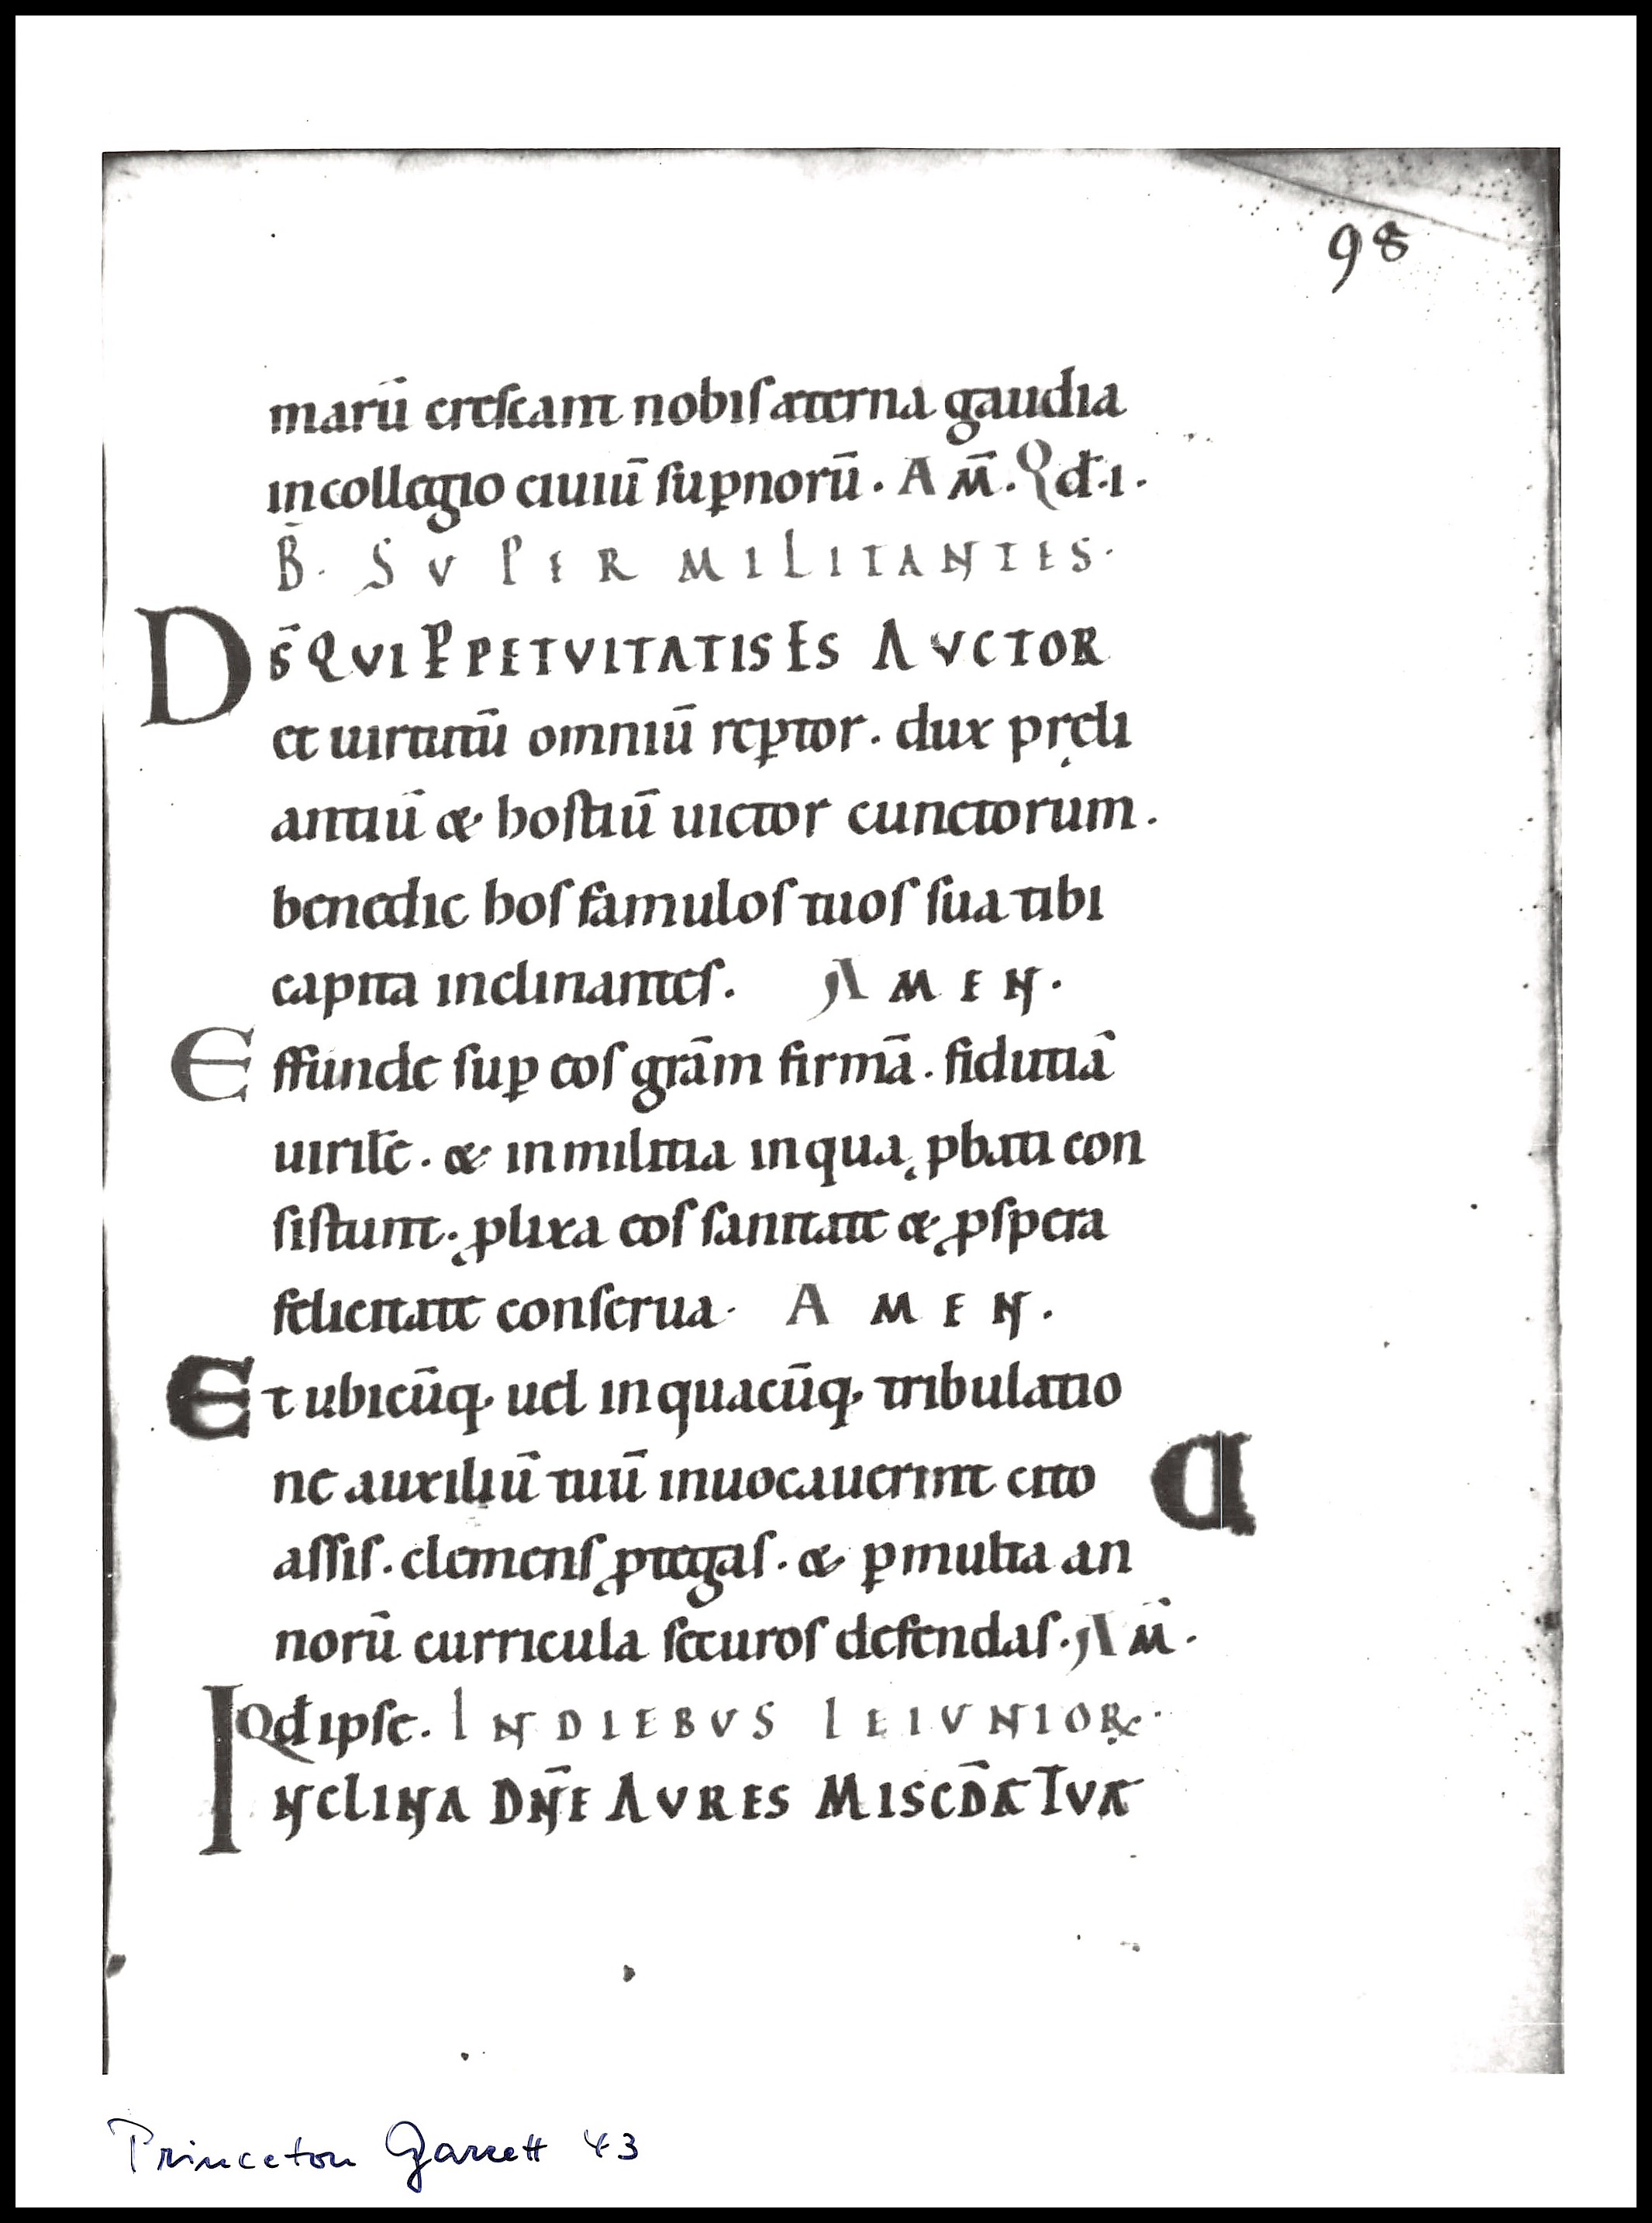 98
marū crescant nobis æterna gaudia
in collegio ciuiū sup̲norū. A M̄. Qđ.i.
B̄. SVPER MILITANTES.
DS̄ QVI P̲PETVITATIS ES AVCTOR
et uirtutū omniū rep̲tor. dux pręli
antiū & hostiū uictor cunctorum.
benedic hos famulos tuos sua tibi
capita inclinantes. AMEN.
Effunde sup̲ eos grām firmā. fidutiā
uirilē. & in militia in qua ꝓbati con
sistunt. ꝓlixa eos sanitate & ꝓspera
felicitate conserua. AMEN.
Et ubicūq; uel in quacūq; tribulatio
ne auxiliū tuū inuocauerint cito
assis. clemens ꝓtegas. & p̲ multa an
norū curricula securos defendas. A M̄.
Qđ ipse. IN DIEBVS IEIVNIOꝜ.
INCLINA DN̄E AVRES MISCD̄Æ TVÆ
Princeton Garrett 43